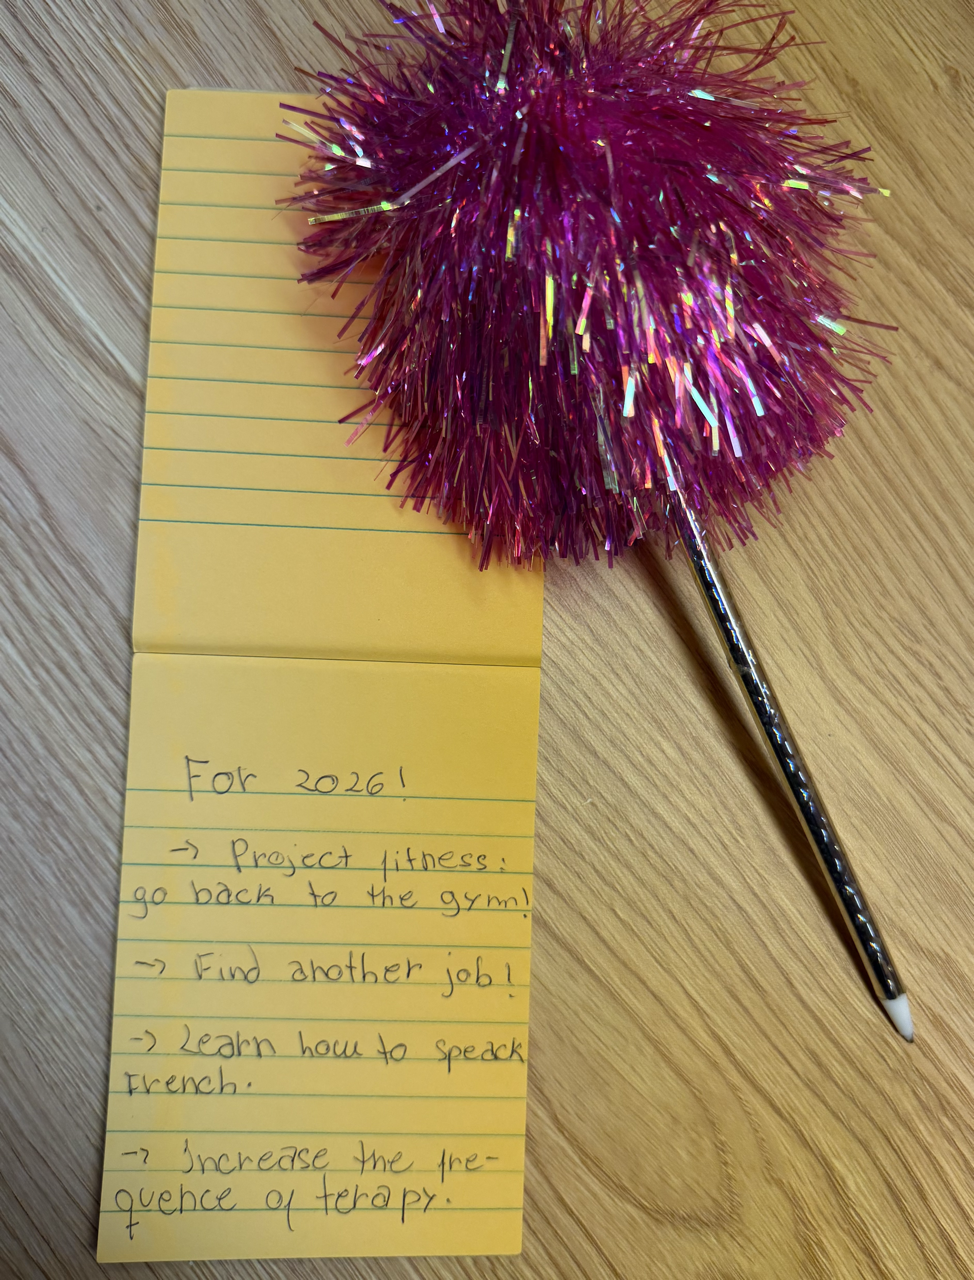 For 2026!
-> Project fitness:
go back to the gym!
-> Find another job!
-> Learn how to speack
French.
-> Increase the fre-
quence of terapy.